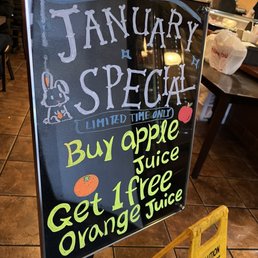 JANUARY
SPECIAL
LIMITED TIME ONLY
Buy apple
Juice
Get 1 free
Orange Juice